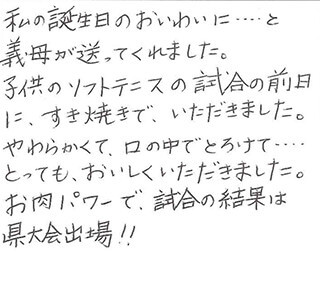 私の誕生日のおいわいに‥‥と
義母が送ってくれました。
子供のソフトテニスの試合の前日
に、すき焼きで、いただきました。
やわらかくて、口の中でとろけて‥‥
とっても、おいしくいただきました。
お肉パワーで、試合の結果は
県大会出場!!